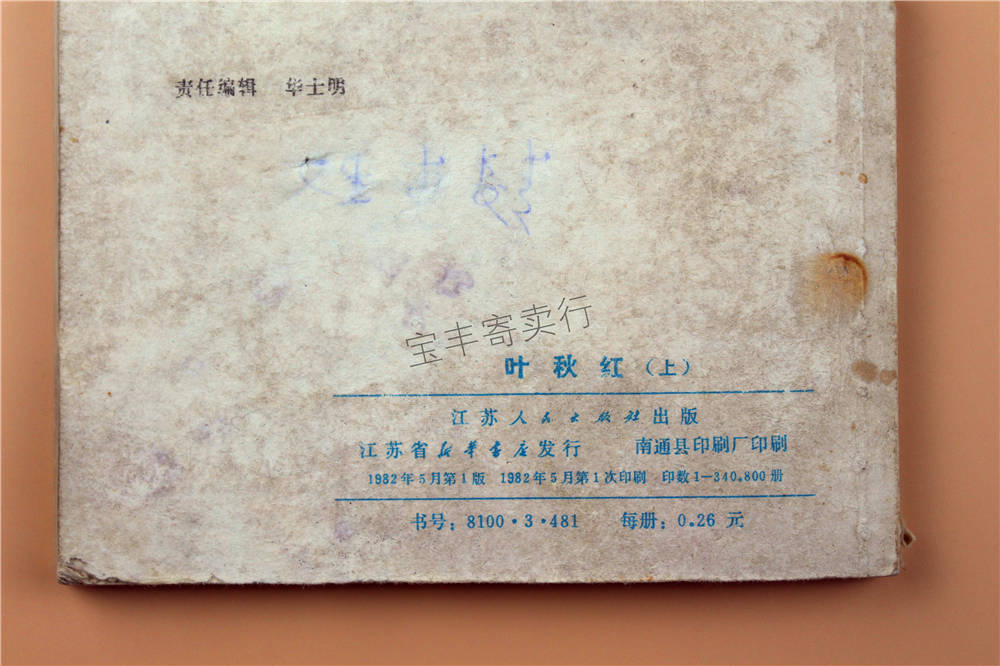 责任编辑 华士明
宝丰寄卖行
叶秋红（上）
江苏人民出版社出版
江苏省新华书店发行 南通县印刷厂印刷
1982年5月第1版 1982年5月第1次印刷 印数1—340,800册
书号：8100·3·481 每册：0.26 元